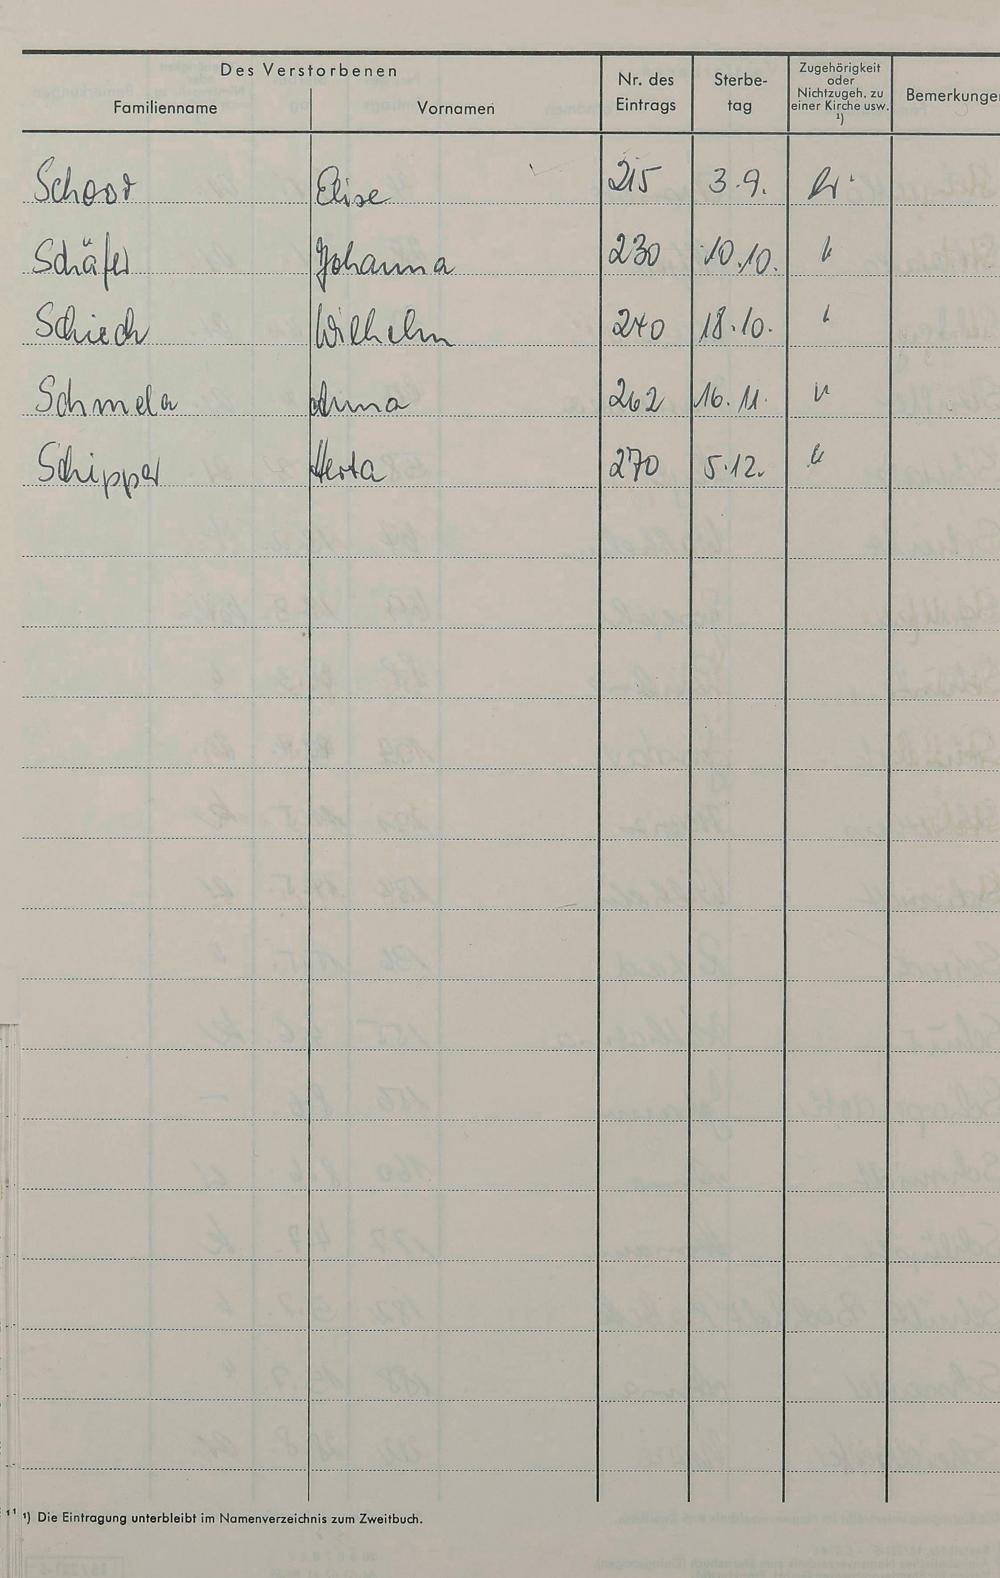 Des Verstorbenen
Familienname Vornamen Nr. des Eintrags Sterbe-tag Zugehörigkeit oder Nichtzugeh. zu einer Kirche usw. ¹) Bemerkunge
Schoor Elise 215 3.9.
Schäfer Johanna 230 10.10. "
Schiech Wilhelm 240 18.10. "
Schmela Anna 262 16.11. "
Schipper Herta 270 5.12. "
¹) Die Eintragung unterbleibt im Namenverzeichnis zum Zweitbuch.